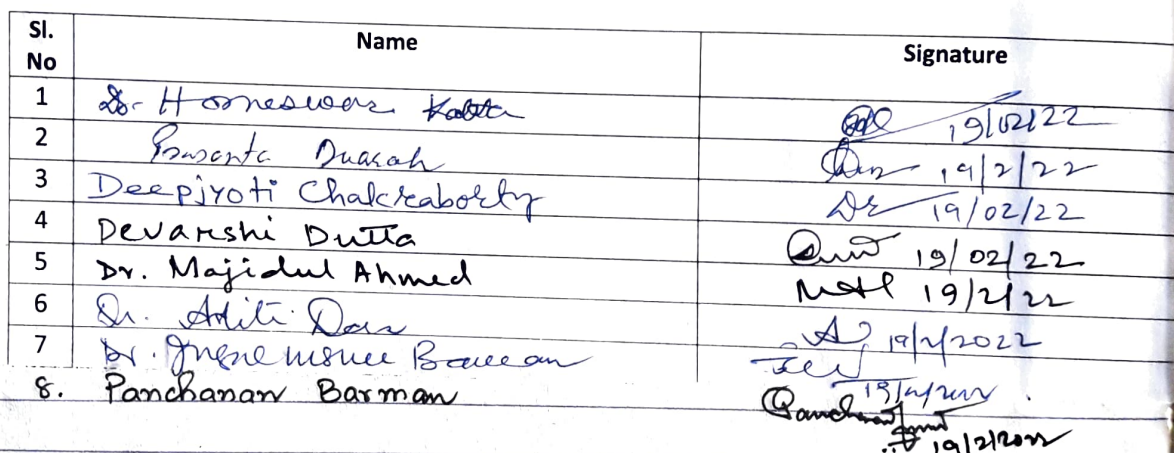 Sl. No Name Signature
1 Dr. Homeswar Kalita 19/02/22
2 Prasanta Duarah 19/2/22
3 Deepjyoti Chakraborty 19/02/22
4 Devarshi Dutta 19/02/22
5 Dr. Majidul Ahmed 19/2/22
6 Dr. Aditi Das 19/2/2022
7 Dr. Barman 19/2/2022
8. Panchanan Barman 19/2/2022